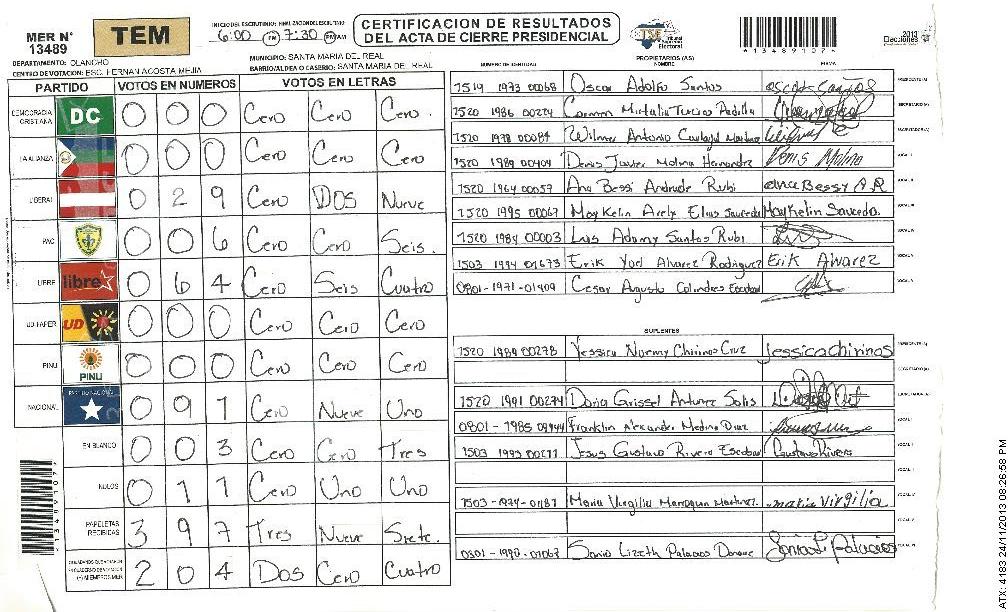 MER N° 13489
TEM
INICIO DEL ESCRUTINIO: FINALIZACION DEL ESCRUTINIO
6:00 PM 7:30 PM AM
CERTIFICACION DE RESULTADOS
DEL ACTA DE CIERRE PRESIDENCIAL
TSE Tribunal Supremo Electoral
1 3 4 8 9 1 0 7 2
2013
Elecciones
DEPARTAMENTO: OLANCHO
MUNICIPIO: SANTA MARIA DEL REAL
CENTRO DE VOTACION: ESC. HERNAN ACOSTA MEJIA
BARRIO/ALDEA O CASERIO: SANTA MARIA DEL REAL
PARTIDO VOTOS EN NUMEROS VOTOS EN LETRAS
DEMOCRACIA CRISTIANA DC 0 0 0 Cero Cero Cero.
LA ALIANZA 0 0 0 Cero Cero Cero
LIBERAL 0 2 9 Cero Dos Nueve
PAC 0 0 6 Cero Cero Seis.
LIBRE libre 0 6 4 Cero Seis Cuatro
UD FAPER UD 0 0 0 Cero Cero Cero
PINU PINU 0 0 0 Cero Cero Cero
NACIONAL PARTIDO NACIONAL 0 9 1 Cero Nueve Uno
EN BLANCO 0 0 3 Cero Cero Tres
NULOS 0 1 1 Cero Uno Uno
PAPELETAS RECIBIDAS 3 9 7 Tres Nueve Siete.
(+) MIEMBROS MER 2 0 4 Dos Cero Cuatro
NUMERO DE IDENTIDAD PROPIETARIOS (AS) NOMBRE FIRMA
1519 1973 00068 Oscar Adolfo Santos Oscar Santos PRESIDENTE(A)
1520 1986 00224 Carmen Mirtalia Turcios Padilla SECRETARIO(A)
1520 1978 00084 Wilmer Antonio ESCRUTADOR(A)
1520 1989 00404 Denis Javier Molina Hernandez Denis Molina VOCAL I
1520 1964 00057 Ana Bessi Andrade Rubi Ana Bessy A.R
1520 1995 00067 Maykelin Arely Elias Sauceda Maykelin Sauceda.
1520 1984 00003 Luis Adamy Santos Rubi
1503 1994 01673 Erik Yoel Alvarez Rodriguez Erik Alvarez
0801-1971-01409 Cesar Augusto Colindres Escobar
SUPLENTES
1520 1989 00278 Yessica Noemy Chirinos Cruz Jessica Chirinos PRESIDENTE(A)
SECRETARIO(A)
1520 1991 00274 Doria Grissel Antunez Solis
0801-1985 09444 Franklin Alexander Medina Diaz
1503 1993 00277 Jesus Gustavo Rivera Escobar Gustavo Rivera
1503-1974-01187 Maria Virgilia Marroquin Martinez. maria Virgilia
0801-1990-01067 Sonia Lizeth Palacios Sonia L Palacios
1 3 4 8 9 1 0 7 2
ATX: 4183 24/11/2013 08:26:58 PM